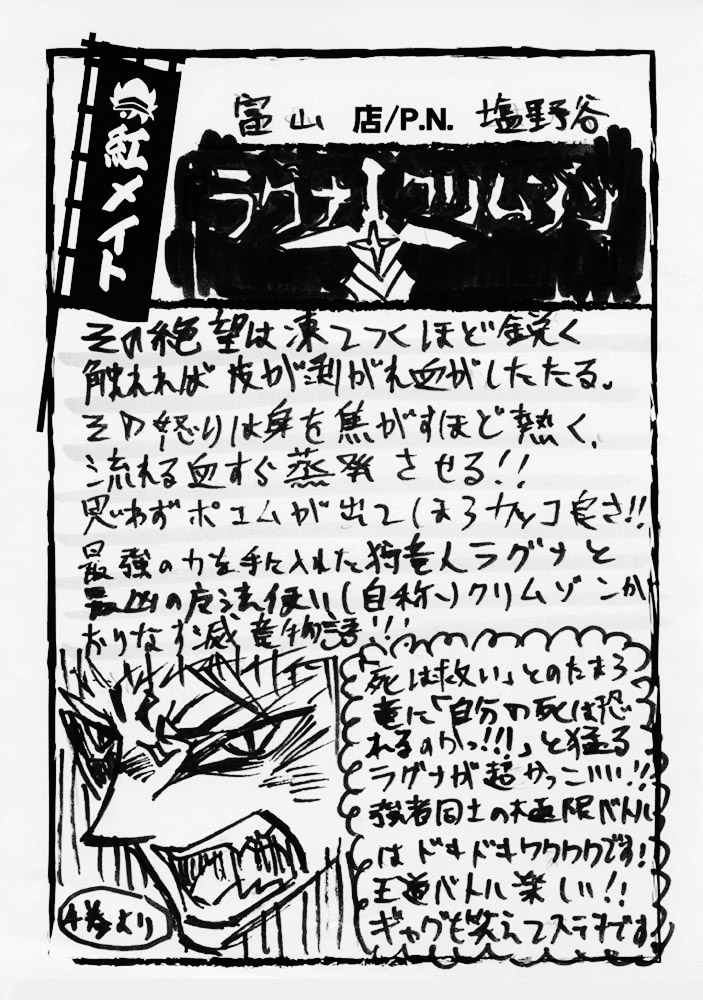 紅メイト
富山 店/P.N. 塩野谷
ラグナクリムゾン
その絶望は凍てつくほど鋭く
触れれば皮が剥がれ血がしたたる。
その怒りは身を焦がすほど熱く、
流れる血すぐ蒸発させる!!
思わずポエムが出てしまうカッコ良さ!!
最強の力を手に入れた狩竜人ラグナと
最凶の魔法使い(自称)クリムゾンが
おりなす滅竜物語!!!
「死は救い」とのたまう
竜に「自分の死は恐
れるのかっ!!!」と猛る
ラグナが超かっこいい!!
強者同士の極限バトル
はドキドキワクワクです!
王道バトル楽しい!!
ギャグも笑えてステキです
4巻より